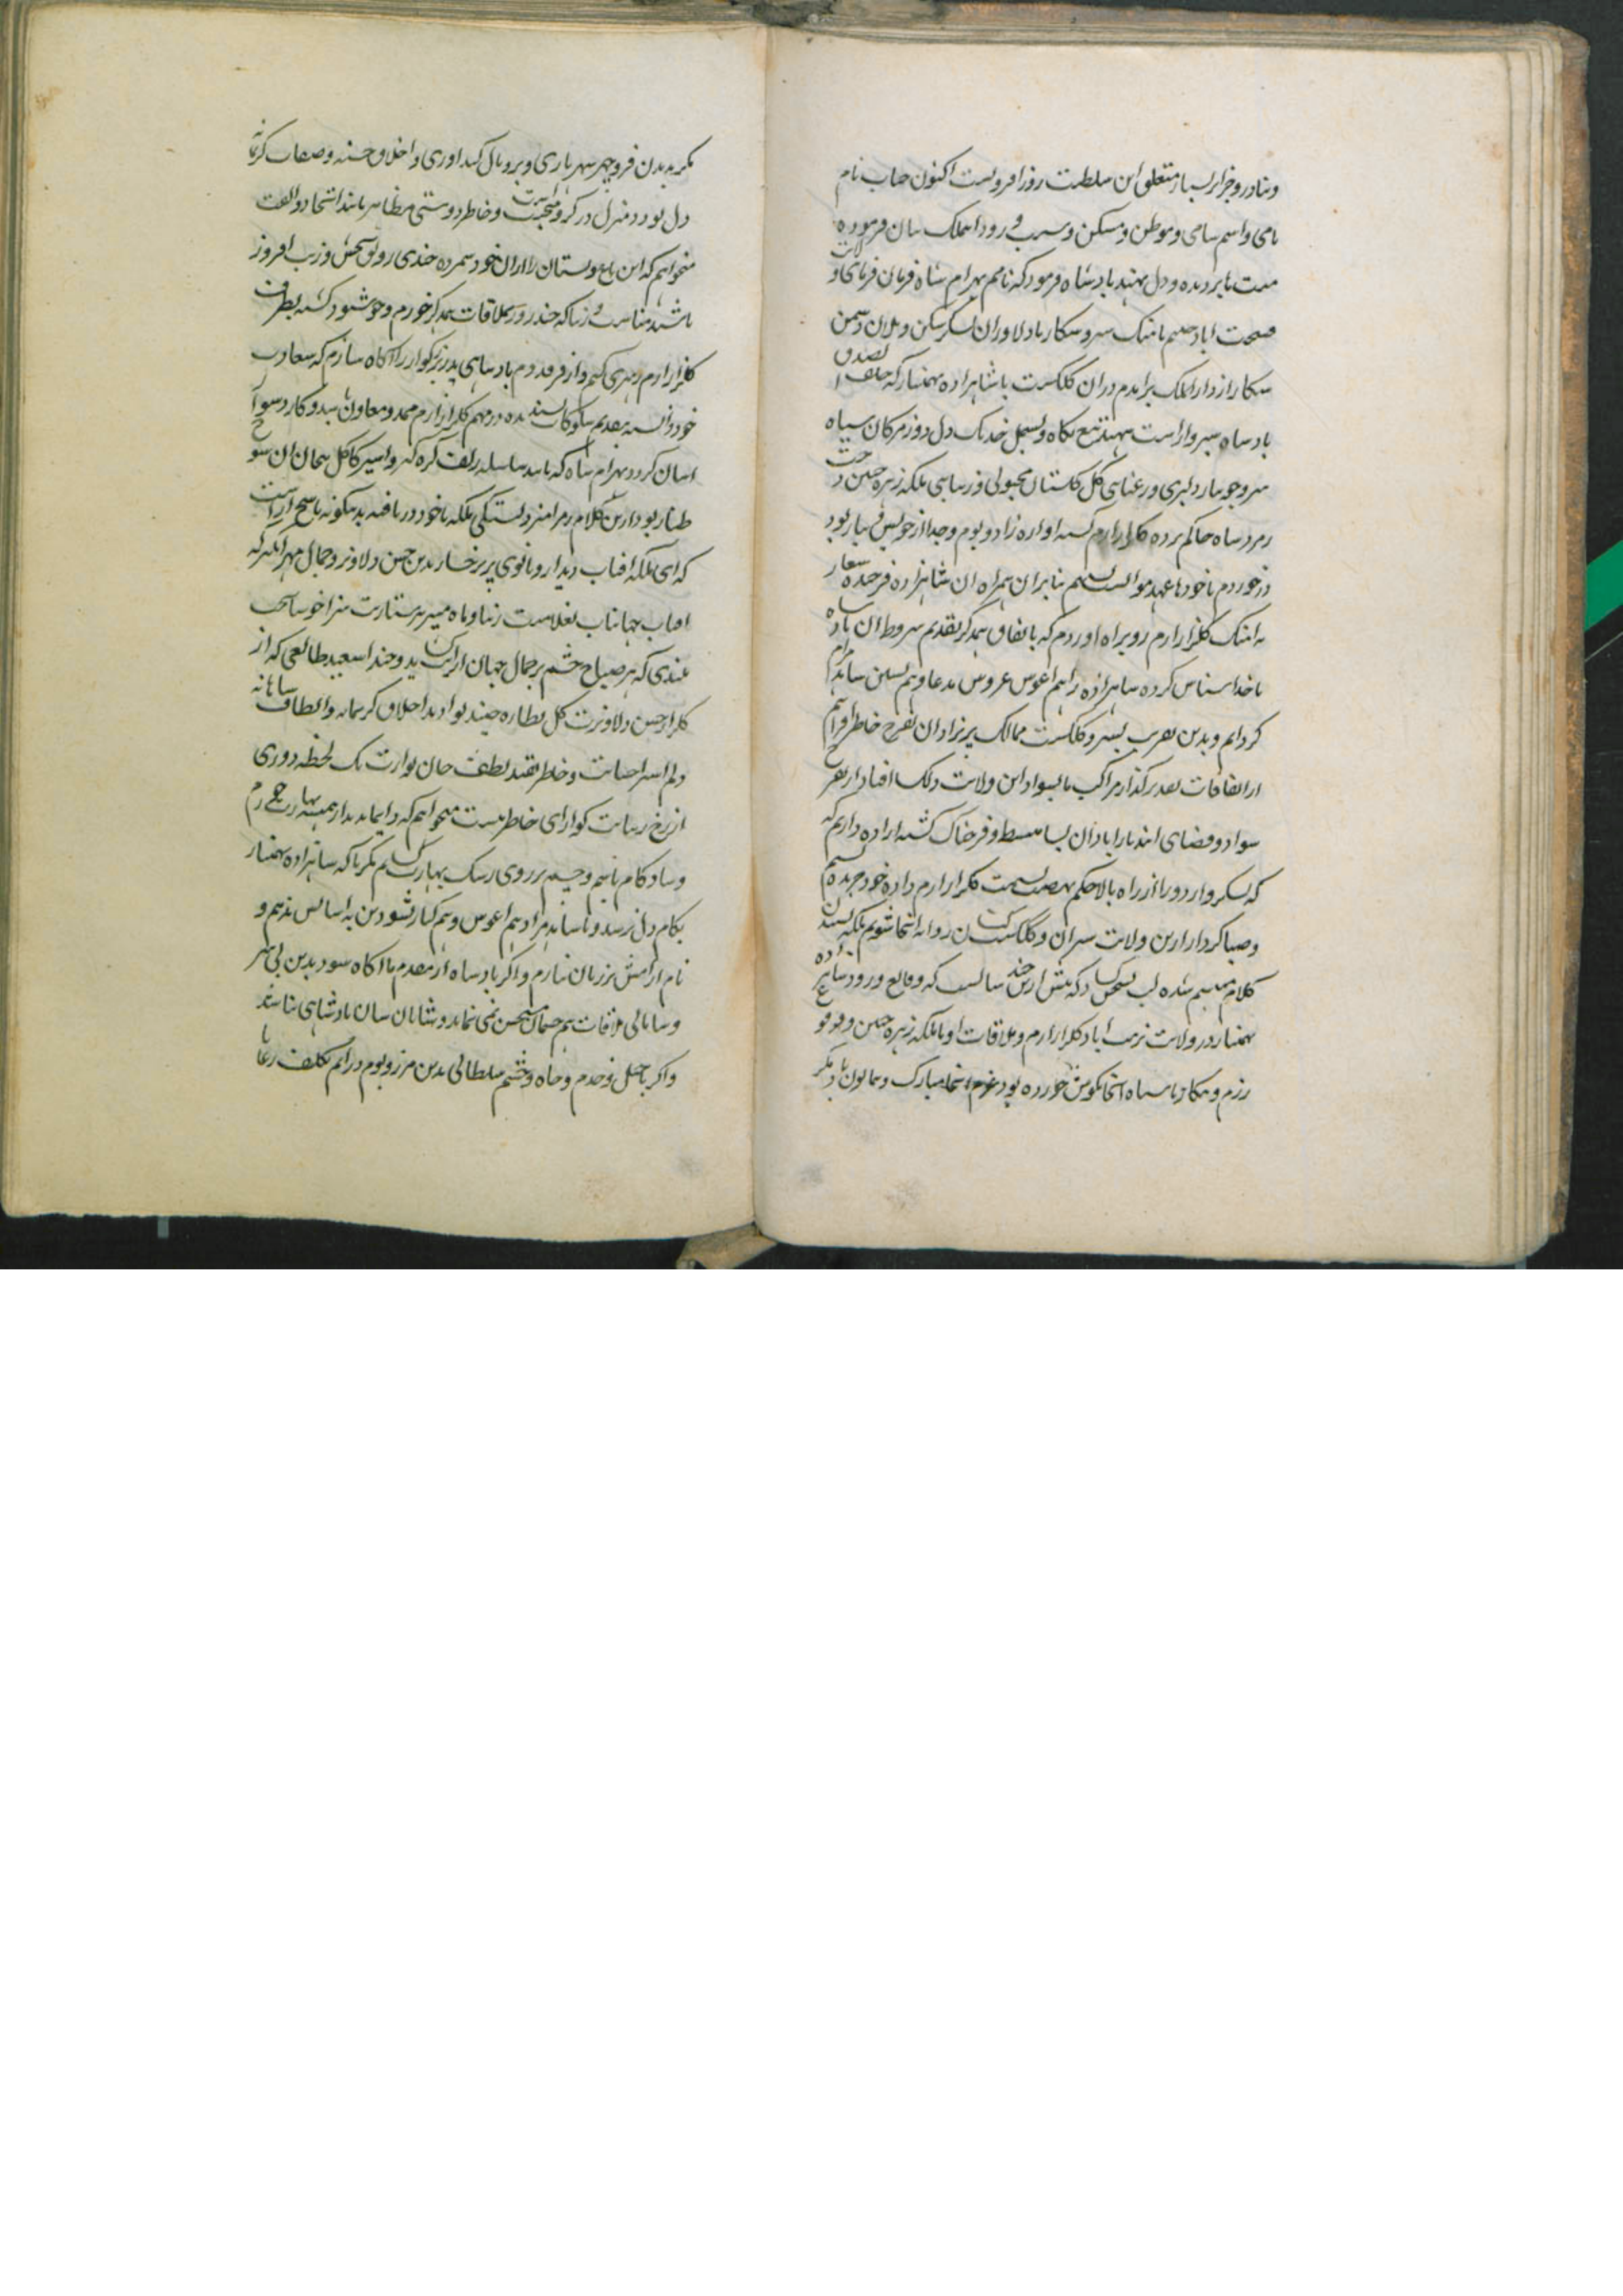 و بنادر و جزایر بسیار متعلق این سلطنت روز افزونست اکنون جناب نام
نامی و اسم سامی و موطن و مسکن و سبب ورود این ملک بیان فرموده
منت بر دیده و دل نهند بادشاه فرمود که نامم بهرام شاه فرمان فرمای ولایت
صحت اباد با دلاوران لشکر شکن و یلان دشمن
شکار از دارالملک برامدم دران گلگشت با شاهزاده بهمنیار که خلف
بادشاه است تیغ نگاه و بسمل خدنک دل دوز مژکان سیاه
سرو جویبار دلبری و رعنایی گل گلستان محبوبی و زیبایی ملکه زهره جبین دخت
زمرد شاه حاکم برده گلزار ارم گشته اواره زاد و بوم و جدا از خویش و تبار بود
در خوردم با خود ها عهد موالست بستیم بنابران همراه ان شاهزاده فرخنده شعار
گلزار ارم رو براه اوردم که باتفاق همدگر بتقدیم شروط ان بادشاه
ناخدا شناس کرده شاهزاده را هم اغوش عروس مدعا و هم
کردانم و بدین تقریب بسیر و گلگشت ممالک پریزادان تفرج خاطر فراهم
از اتفاقات تقدیر گذار مراکب ما بسواد این ولایت دلکشا افتاد از تفرج
سواد و فضای ایندیار ابادان بسا منبسط و فرحناک گشته اراده داریم که
لشکر و اردو را از راه بسمت گلزار ارم داده خود جریده
و صبا کردار ازین ولایت سیران و گلگشت کنان روانه انجا شویم ملکه
کلام متبسم شده لب بسخن کشاد که پیش ازین چند سالست که وقایع ورود شاهزاده
بهمنیار در ولایت اباد گلزار ارم و ملاقات او با ملکه زهره جبین و وقوع
رزم و پیکار با سپاه انجا بگوش من خورده بود عزم انجا مبارک و همایون باد مگر
بدین فر و چهر شهریاری و بر و بال کنداوری و اخلاق حسنه و صفات کریمانه
دل بود در منزل در گرو محبت و خاطر دوستی مظاهر پابند اتحاد و الفت
میخواهم که این باغ و بستان را ازان خود شمرده چندی رونق بخش و زیب افروز
باشید مناسب و زیبا که چند روز بملاقات همدگر خورم و خوشنود گشته بطرف
گلزار ارم رهبری کنم و از فر قدوم بادشاهی پدر بزرگوار را آگاه سازم که سعادت
خود دانسته بتقدیم سلوکات پسندیده در مهم گلزار ارم ممد و معاون باشد و کار دشوار
اسان گردد بهرام شاه که پابند سلسله زلف گره گیر و اسیر کاکل پیچان ان شوخ
طناز بود ازین کلام رمز امیز دلبستگی ملکه با خود دریافته بدینگونه پاسخ اراست
که ای ملکه افتاب دیدار و بانوی پری رخسار بدین حسن دلاویز و جمال مهر انگیز که
افتاب جهانتاب بغلامیت زیبا و ماه منیر بپرستاریت سزا خوشا بخت
بلندی که هر صباح چشم بر جمال جهان ارایت کشاید و چند اسعید طالعی که از
گلزار حسن دلاویزت گل نظاره چیند بواد بداخلاق کریمانه و الطاف شاهانه
دلم اسیر احسانت و خاطر بقید لطف جان نوازت یک لحظه دوری
از رخ زیبایت گوارای خاطر نیست میخواهم که دایما بدیدار همیشه بهارت خرم
و شاد کام باشم و چشم بر روی رشک بهارت کشایم مگر تا که شاهزاده بهمنیار
بکام دل نرسد و با شاهد مراد هم اغوش و هم کنار نشود تن به اسایش ندهم و
نام ارامش بر زبان نیارم و اگر بادشاه از مقدم ما اگاه شود بدین بی سر
و سامانی ملاقات هم چندان مستحسن نمی نماید و شایان شان بادشاهی نباشد
و اگر با خیل و خدم و جاه و حشم سلطانی بدین مرز و بوم درایم تکلف رعایا